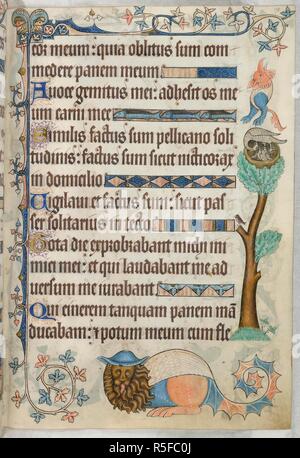 cor meum: quia oblitus sum com
medere panem meum
A uoce gemitus mei: adhesit os me
um carni mee
Similis factus sum pellicano soli
tudinis: factus sum sicut nicticorax
in domicilio
Uigilaui et factus sum: sicut pas
ser solitarius in tecto
Tota die exprobrabant michi ini
mici mei: et qui laudabant me ad
uersum me iurabant
Quia cinerem tanquam panem man
ducabam: et potum meum cum fle
alamy
www.alamy.com - R5FC0J